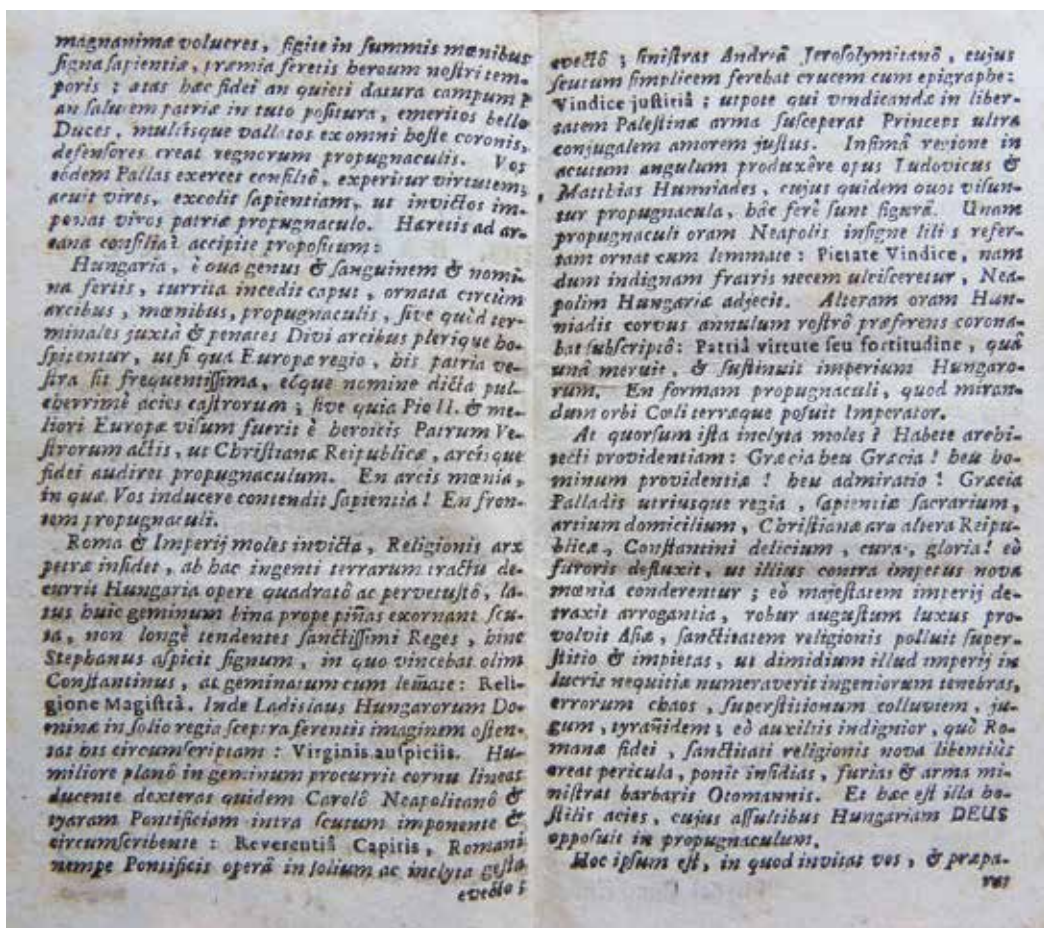 magnanimæ volucres, figite in summis mœnibus
signa sapientiæ, præmia feretis heroum nostri tem-
poris; ætas hæc fidei an quieti datura campum?
an salutem patriæ in tuto positura, emeritos bello
Duces, multisque vallatos ex omni hoste coronis,
defensores creat regnorum propugnaculis. Vos
eôdem Pallas exerces consiliô, experitur virtutem,
acuit vires, excolit sapientiam, ut invictos im-
ponat viros patriæ propugnaculo. Hæretis ad ar-
cana consilia? accipite propositum:
Hungaria, è qua genus & sanguinem & nomi-
na fertis, turrita incedit caput, ornata circùm
arcibus, mœnibus, propugnaculis, sive quòd ter-
minales juxtà & penates Divi arcibus plerique ho-
spitentur, ut si qua Europæ regio, his patria ve-
stra sit frequentissima, eòque nomine dicta pul-
cherrimè acies castrorum; sive quia Pio II. & me-
liori Europæ visum fuerit è heroicis Patrum Ve-
strorum actis, ut Christianæ Reipublicæ, arcisque
fidei audiret propugnaculum. En arcis mœnia,
in quæ Vos inducere contendit sapientia! En fron-
tem propugnaculi.
Roma & Imperij moles invicta, Religionis arx
petræ insidet, ab hac ingenti terrarum tractu de-
currit Hungaria opere quadratô ac pervetustô, la-
tus huic geminum bina prope piñas exornant scu-
ta, non longè tendentes sanctissimi Reges, hinc
Stephanus aspicit signum, in quo vincebat olim
Constantinus, at geminatum cum lem̃ate: Reli-
gione Magistrâ. Inde Ladislaus Hungarorum Do-
minæ in solio regia sceptra ferentis imaginem osten-
tat his circumscriptam: Virginis auspiciis. Hu-
miliore planô in geminum procurrit cornu lineas
ducente dexteras quidem Carolô Neapolitanô &
tyaram Pontificiam intra scutum imponente &
circumscribente: Reverentiâ Capitis, Romani
nempe Pontificis operâ in solium ac inclyta gesta
evectô;
evectô; sinistras Andreâ Jerosolymitanô, cujus
scutum simplicem ferebat crucem cum epigraphe:
Vindice justitiâ; utpote qui vindicandæ in liber-
tatem Palestinæ arma susceperat Princeps ultra
conjugalem amorem justus. Infimâ regione in
acutum angulum produxêre opus Ludovicus &
Matthias Hunniades, cujus quidem quot visun-
tur propugnacula, hâc ferè sunt figurâ. Unam
propugnaculi oram Neapolis insigne lili s refer-
tam ornat cum lemmate: Pietate Vindice, nam
dum indignam fratris necem ulcisceretur, Nea-
polim Hungariæ adjecit. Alteram oram Hun-
niadis corvus annulum rostrô præferens corona-
bat subscriptô: Patriâ virtute seu fortitudine, quâ
unâ meruit, & sustinuit imperium Hungaro-
rum. En formam propugnaculi, quod miran-
dum orbi Cœli terræque posuit Imperator.
At quorsum ista inclyta moles? Habete archi-
tecti providentiam: Græcia heu Græcia! heu ho-
minum providentiæ! heu admiratio! Græcia
Palladis utriusque regia, sapientiæ sacrarium,
artium domicilium, Christianæ ara altera Reipu-
blicæ, Constantini delicium, cura, gloria! eò
furoris defluxit, ut illius contra impetus nova
mœnia conderentur; eò majestatem imperij de-
traxit arrogantia, robur augustum luxus pro-
volvit Asiæ, sanctitatem religionis polluit super-
stitio & impietas, ut dimidium illud imperij in
lucris nequitiæ numeraverit ingeniorum tenebras,
errorum chaos, superstitionum colluviem, ju-
gum, tyrañidem; eò auxiliis indignior, quò Ro-
manæ fidei, sanctitati religionis nova libentiùs
creat pericula, ponit insidias, furias & arma mi-
nistrat barbaris Otomannis. Et hæc est illa ho-
stilis acies, cujus assultibus Hungariam DEUS
opposuit in propugnaculum.
Hoc ipsum est, in quod invitat vos, & præpa-
rat